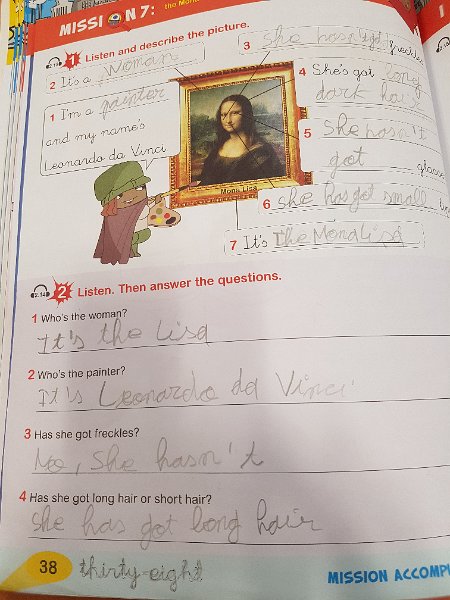 MISSION 7:
the Mona
2.13 1 Listen and describe the picture.
2 It's a Woman
1 I'm a painter
and my name's
Leonardo da Vinci
3 She hasn't got freckles
4 She's got long
dark hair
5 She hasn't
got glasses
6 She has got small
7 It's The Mona Lisa
Mona Lisa
2.14 2 Listen. Then answer the questions.
1 Who's the woman?
It's the Lisa
2 Who's the painter?
It's Leonardo da Vinci
3 Has she got freckles?
No, She hasn't
4 Has she got long hair or short hair?
She has got long hair
38 thirty-eight
MISSION ACCOMPL